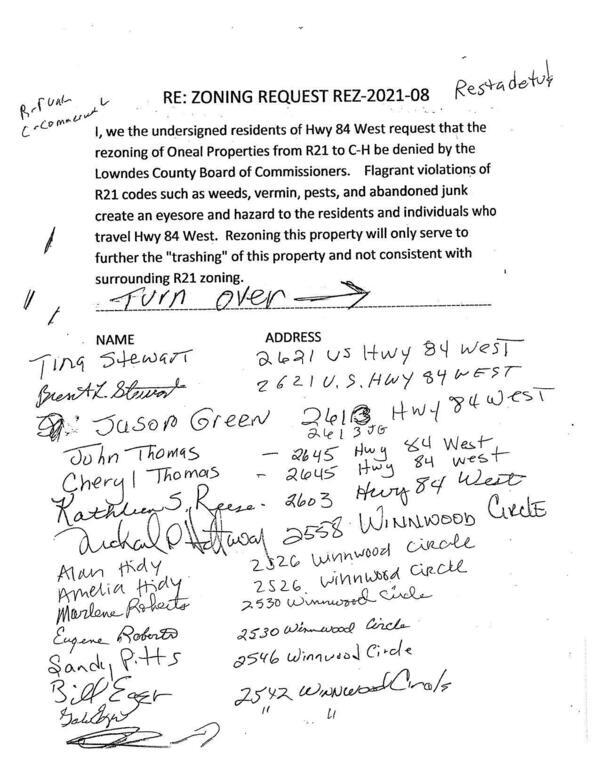 R-rural
C-commercial
RE: ZONING REQUEST REZ-2021-08
I, we the undersigned residents of Hwy 84 West request that the
rezoning of Oneal Properties from R21 to C-H be denied by the
Lowndes County Board of Commissioners. Flagrant violations of
R21 codes such as weeds, vermin, pests, and abandoned junk
create an eyesore and hazard to the residents and individuals who
travel Hwy 84 West. Rezoning this property will only serve to
further the "trashing" of this property and not consistent with
surrounding R21 zoning.
Turn over
NAME ADDRESS
Tina Stewart 2621 US Hwy 84 West
Brent L. Stewart 2621 U.S. HWY 84 WEST
Jason Green 2613 Hwy 84 West
2613 JG
John Thomas - 2645 Hwy 84 West
Cheryl Thomas - 2645 Hwy 84 West
Kathleen S. Reese. 2603 Hwy 84 West
2558 WINNWOOD CIRCLE
Alan Hidy 2526 Winnwood Circle
Amelia Hidy 2526 Winnwood Circle
Marlene Roberts 2530 Winnwood Circle
Eugene Roberts 2530 Winnwood Circle
Sandy Pitts 2546 Winnwood Circle
Bill Eager 2542 Winnwood Circle
" "